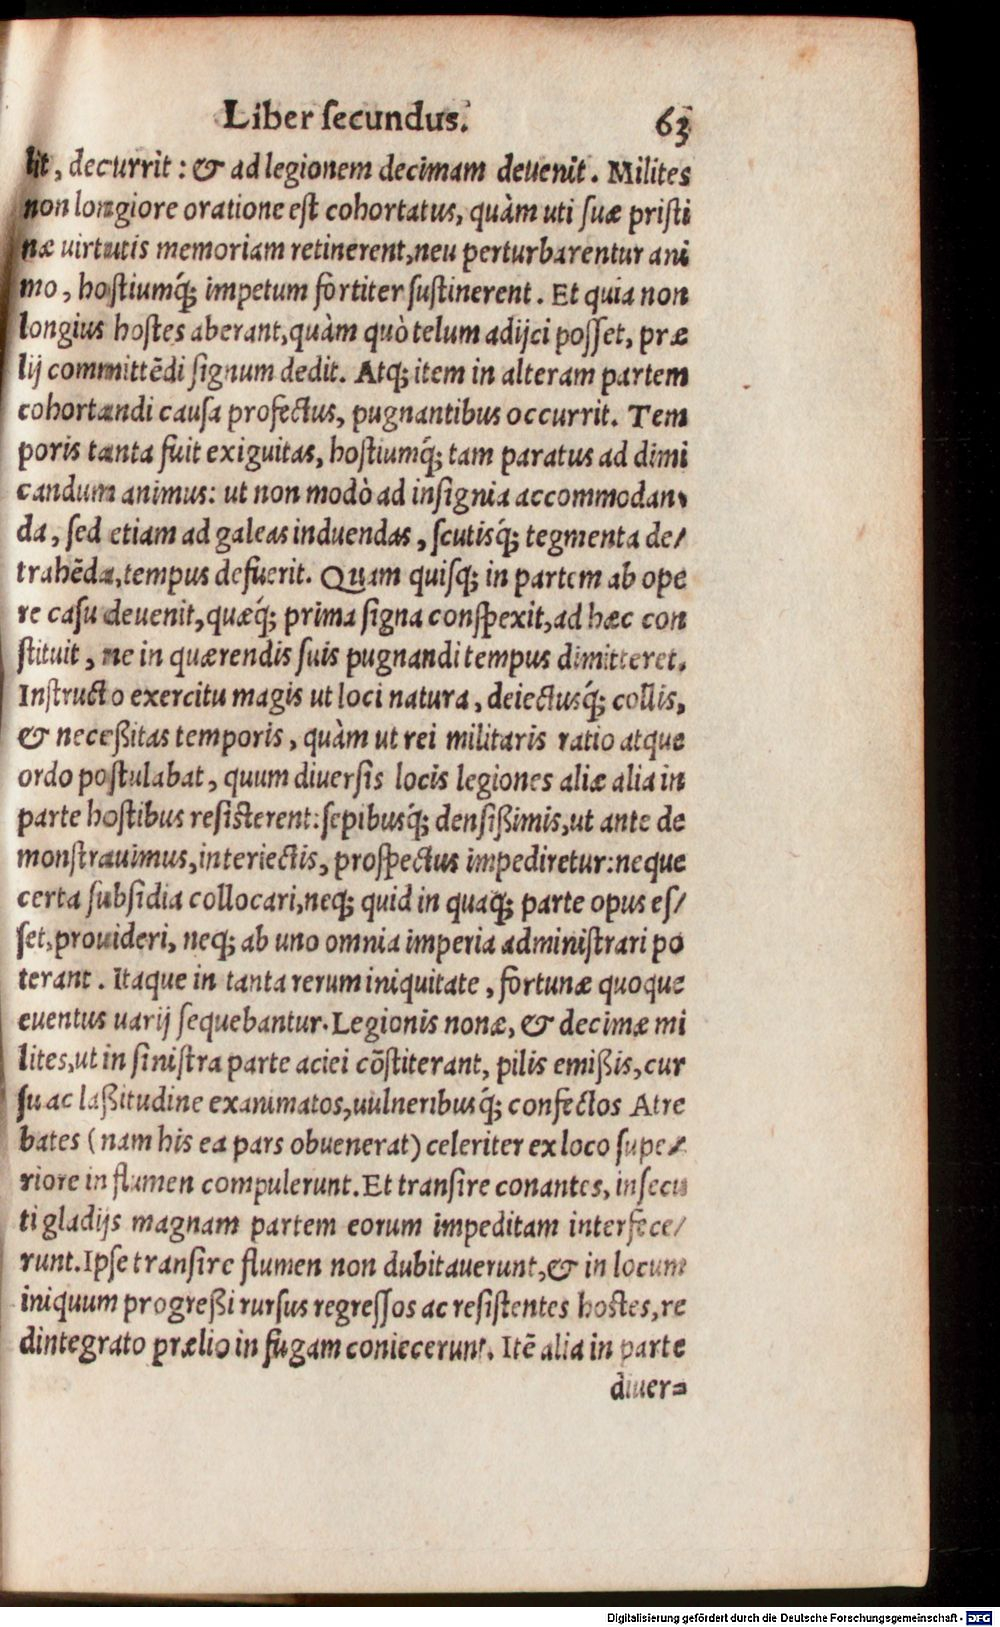 Liber ſecundus. 63
lit, decurrit: & ad legionem decimam deuenit. Milites
non longiore oratione eſt cohortatus, quàm uti ſuæ priſti
næ uirtutis memoriam retinerent, neu perturbarentur ani
mo, hoſtiumq́; impetum fortiter ſuſtinerent. Et quia non
longius hoſtes aberant, quàm quò telum adijci poſſet, præ
lij committẽdi ſignum dedit. Atq; item in alteram partem
cohortandi cauſa profectus, pugnantibus occurrit. Tem
poris tanta fuit exiguitas, hoſtiumq́; tam paratus ad dimi
candum animus: ut non modò ad inſignia accommodan
da, ſed etiam ad galeas induendas, ſcutisq́; tegmenta de/
trahẽda, tempus defuerit. Quam quiſq; in partem ab ope
re caſu deuenit, quæq́; prima ſigna conſpexit, ad hæc con
ſtituit, ne in quærendis ſuis pugnandi tempus dimitteret.
Inſtructo exercitu magis ut loci natura, deiectusq́; collis,
& neceßitas temporis, quàm ut rei militaris ratio atque
ordo poſtulabat, quum diuerſis locis legiones aliæ alia in
parte hoſtibus reſiſterent: ſepibusq́; denſißimis, ut ante de
monſtrauimus, interiectis, proſpectus impediretur: neque
certa ſubſidia collocari, neq; quid in quaq; parte opus eſ/
ſet, prouideri, neq; ab uno omnia imperia adminiſtrari po
terant. Itaque in tanta rerum iniquitate, fortunæ quoque
euentus uarij ſequebantur. Legionis nonæ, & decimæ mi
lites, ut in ſiniſtra parte aciei cõſtiterant, pilis emißis, cur
ſu ac laßitudine exanimatos, uulneribusq́; confectos Atre
bates (nam his ea pars obuenerat) celeriter ex loco ſupe/
riore in flumen compulerunt. Et tranſire conantes, inſecu
ti gladijs magnam partem eorum impeditam interfece/
runt. Ipſe tranſire flumen non dubitauerunt, & in locum
iniquum progreßi rurſus regreſſos ac reſiſtentes hoſtes, re
dintegrato prælio in fugam coniecerunt. Itẽ alia in parte
diuer=
Digitalisierung gefördert durch die Deutsche Forschungsgemeinschaft - DFG